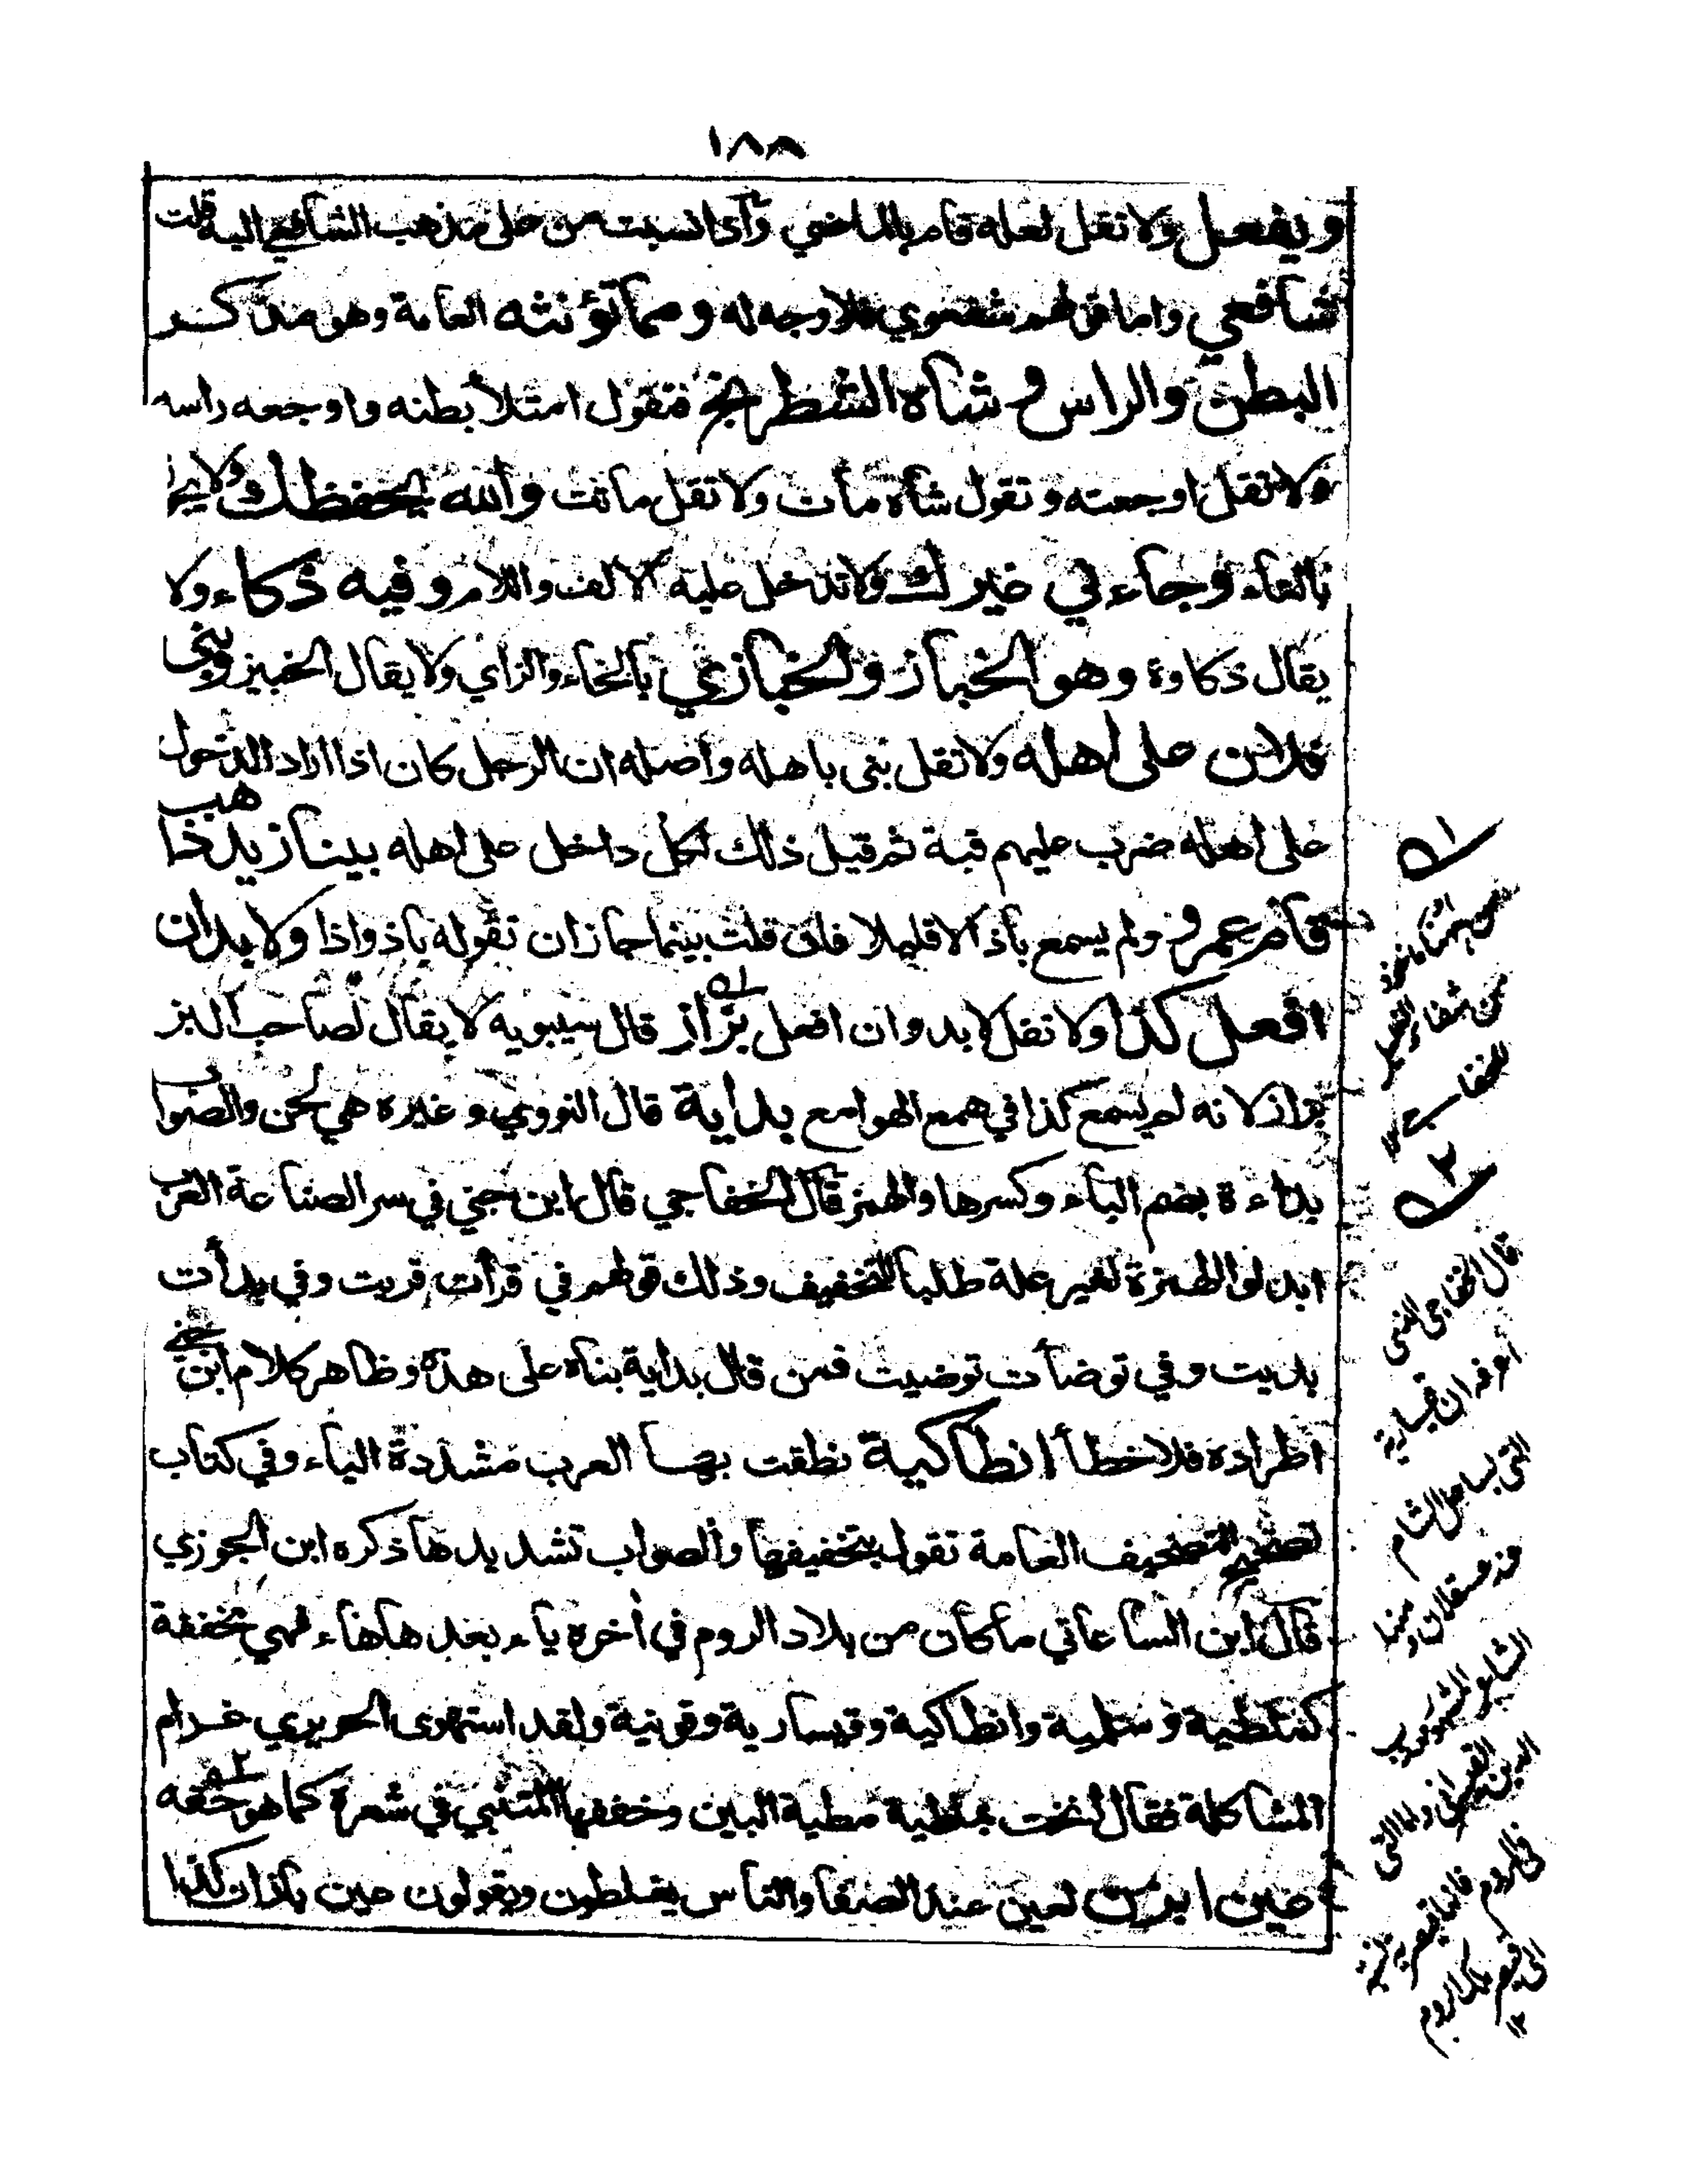 ١٨٨
ويفعل ولا تقل لعله قام بالماضي واذا نسبت من على مذهب الشافعي اليه قلت
شافعي واما قولهم شفعوي فلا وجه له ومما تؤنثه العامة وهو مذكر
البطن والراس و شاه الشطرنج فتقول امتلأ بطنه واوجعه راسه
ولا تقل اوجعته وتقول شاه مات ولا تقل ماتت والله يحفظك ولا
بالتاء وجاء ني غيرك ولا تدخل عليه الالف واللام وفيه ذكاء ولا
يقال ذكاوة وهو الخباز والخبازي بالخاء والزاي ولا يقال الخبيز وبنى
فلان على اهله ولا تقل بنى باهله واصله ان الرجل كان اذا اراد الدخول
على اهله ضرب عليهم قبة ثم قيل ذلك لكل داخل على اهله بينا زيد ذاهب
قام عمرو ولم يسمع بأذ الا قليلا فان قلت بينما جاز ان تقوله باذ واذا ولا بد ان
افعل كذا ولا تقل لا بد وان افعل بزاز قال سيبويه لا يقال لصاحب البز
بزاز لانه لم يسمع كذا في همع الهوامع بداية قال النووي وغيره هي لحن والصواب
بداءة بضم الباء وكسرها والهمز قال الخفاجي قال ابن جني في سر الصناعة العرب
ابدلوا الهمزة لغير علة طلبا للتخفيف وذلك قولهم في قرأت قريت وفي بدأت
بديت وفي توضأت توضيت فمن قال بداية بناه على هذه وظاهر كلام ابن جني
اطراده فلا خطأ انطاكية نطقت بها العرب مشددة الياء وفي كتاب
تصحيح التصحيف العامة تقول بتخفيفها والصواب تشديدها ذكره ابن الجوزي
قال ابن الساعاتي ما كان من بلاد الروم في أخره ياء بعدها هاء فهي مخففة
كملطية وسلمية وانطاكية وقيسارية وقونية ولقد استهوى الحريري غرام
المشاكلة فقال أنخت بملطية مطية البين وخففها المتنبي في شعره كما هو حقه
لعين عند الصفا والناس يغلطون ويقولون حين باذان كذا
من شفاء الغليل
للخفاجي
٢
قال الخفاجي الذي
أعرفه ان قيسارية
التي بساحل الشام